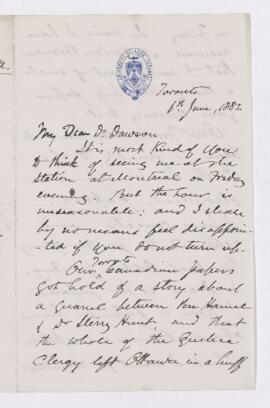 Toronto
6th June, 1882
My Dear Dr Dawson
It is most kind of you
to think of seeing me at the
station at Montreal on Friday
evening. But the hour is
unseasonable; and I shall
by no means feel disappoin-
ted if you do not turn up.
Our Toronto Canadian papers
got hold of a story about
a quarrel between
& Dr Sterry Hunt, and that
the whole of the Quebec
Clergy left Ottawa in a huff